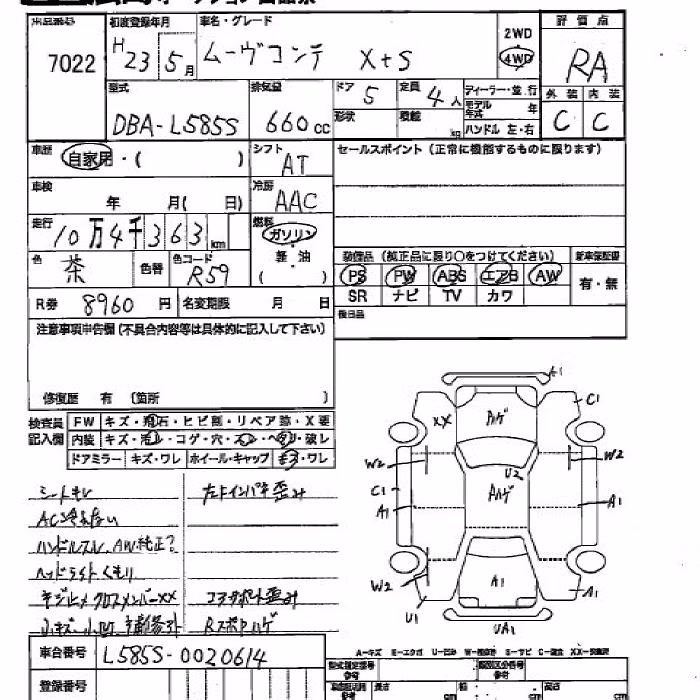 出品番号 7022
初度登録年月 H23 5月
車名・グレード ムーヴコンテ X+S
2WD 4WD
評価点 RA
型式 DBA-L585S
排気量 660cc
ドア 5 定員 4人
形状 積載 kg
ディーラー・並行
モデル年式 年
ハンドル 左・右
外装 内装
C C
車歴 自家用・( )
シフト AT
セールスポイント (正常に機能するものに限ります)
車検 年 月( 日)
冷房 AAC
走行 10万4千363km
燃料 ガソリン
軽・油
( )
色 茶 色替 色コード R59
装備品 (純正品に限り○をつけてください) 新車保証書
PS PW ABS エアB AW 有・無
SR ナビ TV カワ
R券 8960円 名変期限 月 日
後日品
注意事項申告欄 (不具合内容等は具体的に記入して下さい)
修復歴 有 (箇所 )
検査員記入欄
FW キズ・飛石・ヒビ割・リペア跡・X要
内装 キズ・汚レ・コゲ・穴・スレ・ヘタリ・破レ
ドアミラー キズ・ワレ ホイール・キャップ キズ・ワレ
シートキレ
AC冷えない
ハンドルスレ、AW純正?
ヘッドライトくもり
キジ止メクロスメンバーXX
コアサポート歪み
Rスポハゲ
A1
C1
XX
ハゲ
W2 W2
U2
C1
A1
ハゲ
A1
W2
A1
A1
U1
UA1
A-キズ E-エクボ U-凹み W-補修跡 S-サビ C-腐食 XX-交換済
車台番号 L585S-0020614
登録番号
型式指定番号 参考
類別区分番号 参考
車両寸法 参考 長さ cm 幅 cm 高さ cm